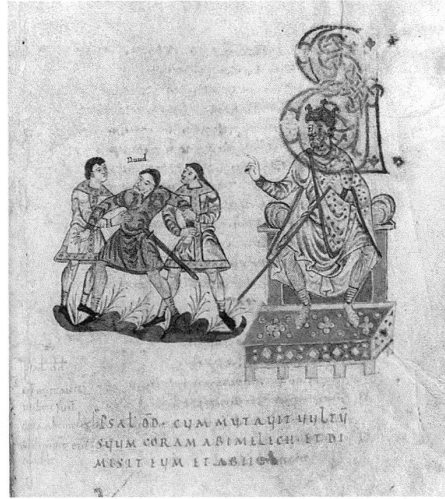 Dauid
PSAL DD. CUM MUTAUIT UULTŪ
SUUM CORAM ABIMELICH ET DI
MISIT EUM ET ABIIT